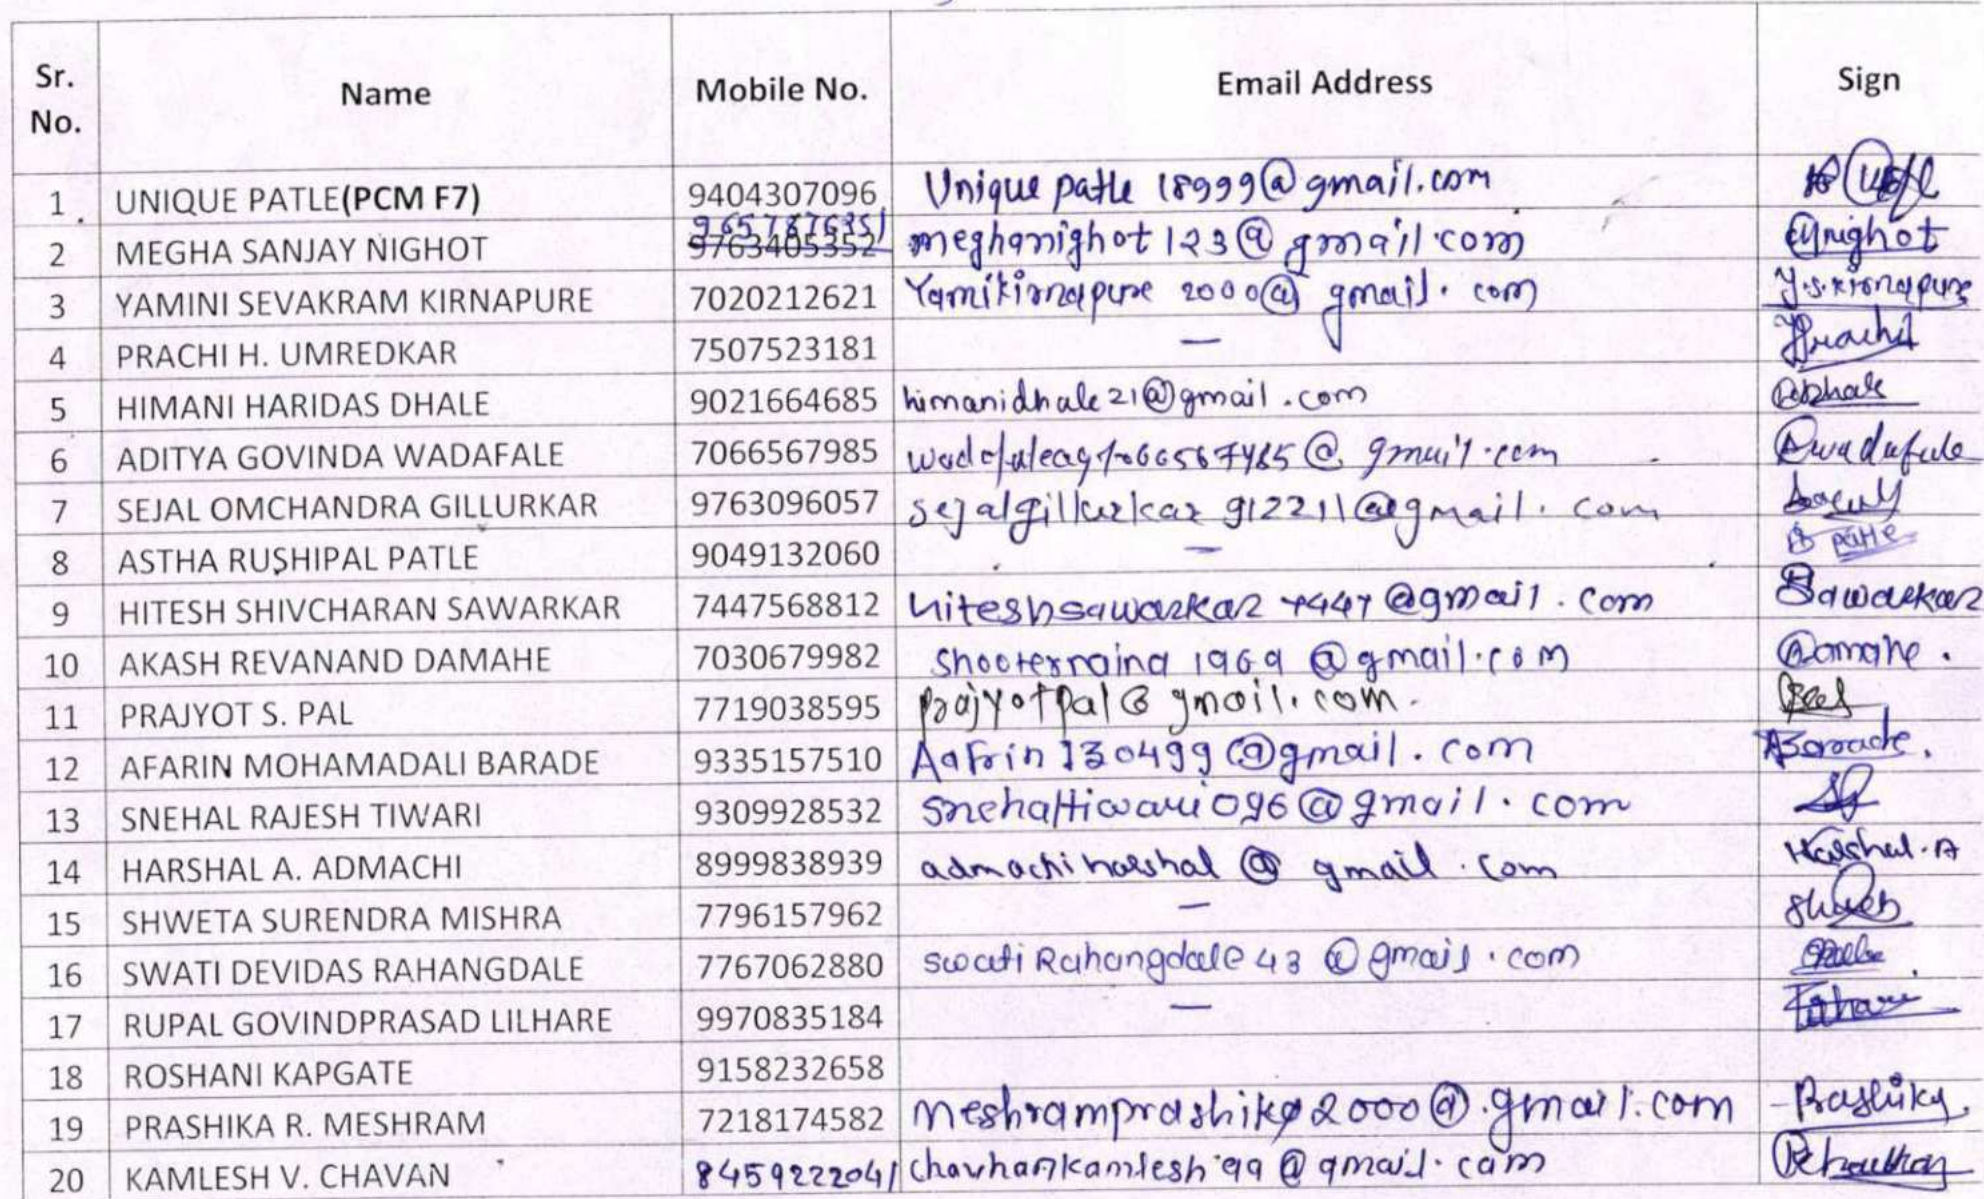 Sr. No. Name Mobile No. Email Address Sign
1 UNIQUE PATLE(PCM F7) 9404307096 Unique patle 18999@gmail.com
9657876351
2 MEGHA SANJAY NIGHOT 9763405352 meghanighot123@gmail.com Mnighot
3 YAMINI SEVAKRAM KIRNAPURE 7020212621 Yamikirnapure 2000@gmail.com Y.S.Kirnapure
4 PRACHI H. UMREDKAR 7507523181 — Prachi
5 HIMANI HARIDAS DHALE 9021664685 himanidhale21@gmail.com
6 ADITYA GOVINDA WADAFALE 7066567985 Awadafale
7 SEJAL OMCHANDRA GILLURKAR 9763096057 sejalgillurkar 912211@gmail.com
8 ASTHA RUSHIPAL PATLE 9049132060 — Patle
9 HITESH SHIVCHARAN SAWARKAR 7447568812 hiteshsawarkar 7447@gmail.com Sawarkar
10 AKASH REVANAND DAMAHE 7030679982 shooternaina 1969@gmail.com
11 PRAJYOT S. PAL 7719038595 prajyotpal@gmail.com.
12 AFARIN MOHAMADALI BARADE 9335157510 Aafrin130499@gmail.com Barade.
13 SNEHAL RAJESH TIWARI 9309928532 snehaltiwari096@gmail.com
14 HARSHAL A. ADMACHI 8999838939 admachiharshal@gmail.com Harshal.A
15 SHWETA SURENDRA MISHRA 7796157962 —
16 SWATI DEVIDAS RAHANGDALE 7767062880 swatiRahangdale43@gmail.com
17 RUPAL GOVINDPRASAD LILHARE 9970835184 —
18 ROSHANI KAPGATE 9158232658
19 PRASHIKA R. MESHRAM 7218174582 meshramprashika2000@.gmail.com Prashika
20 KAMLESH V. CHAVAN 8459222041 chavhankamlesh99@gmail.com